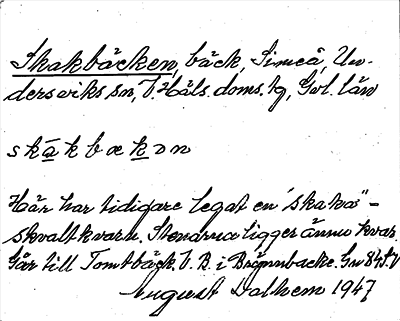 Skakbäcken, bäck, Simeå, Un-
dersviks sn, V. Häls. doms. hg, Gvl. län
skakbækɔn
Här har tidigare legat en "skaka"-
skvaltkvarn. Stendrucc ligger ännu kvar
Går till Tomtbäck. V. B. i Brännbacke.
August Dalhem 1947